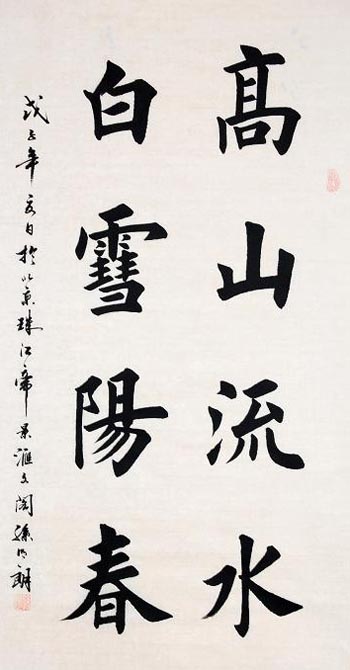 髙山流水
白雪陽春
戊子年夏日於北京珠江帝景滙文閣孫明朗